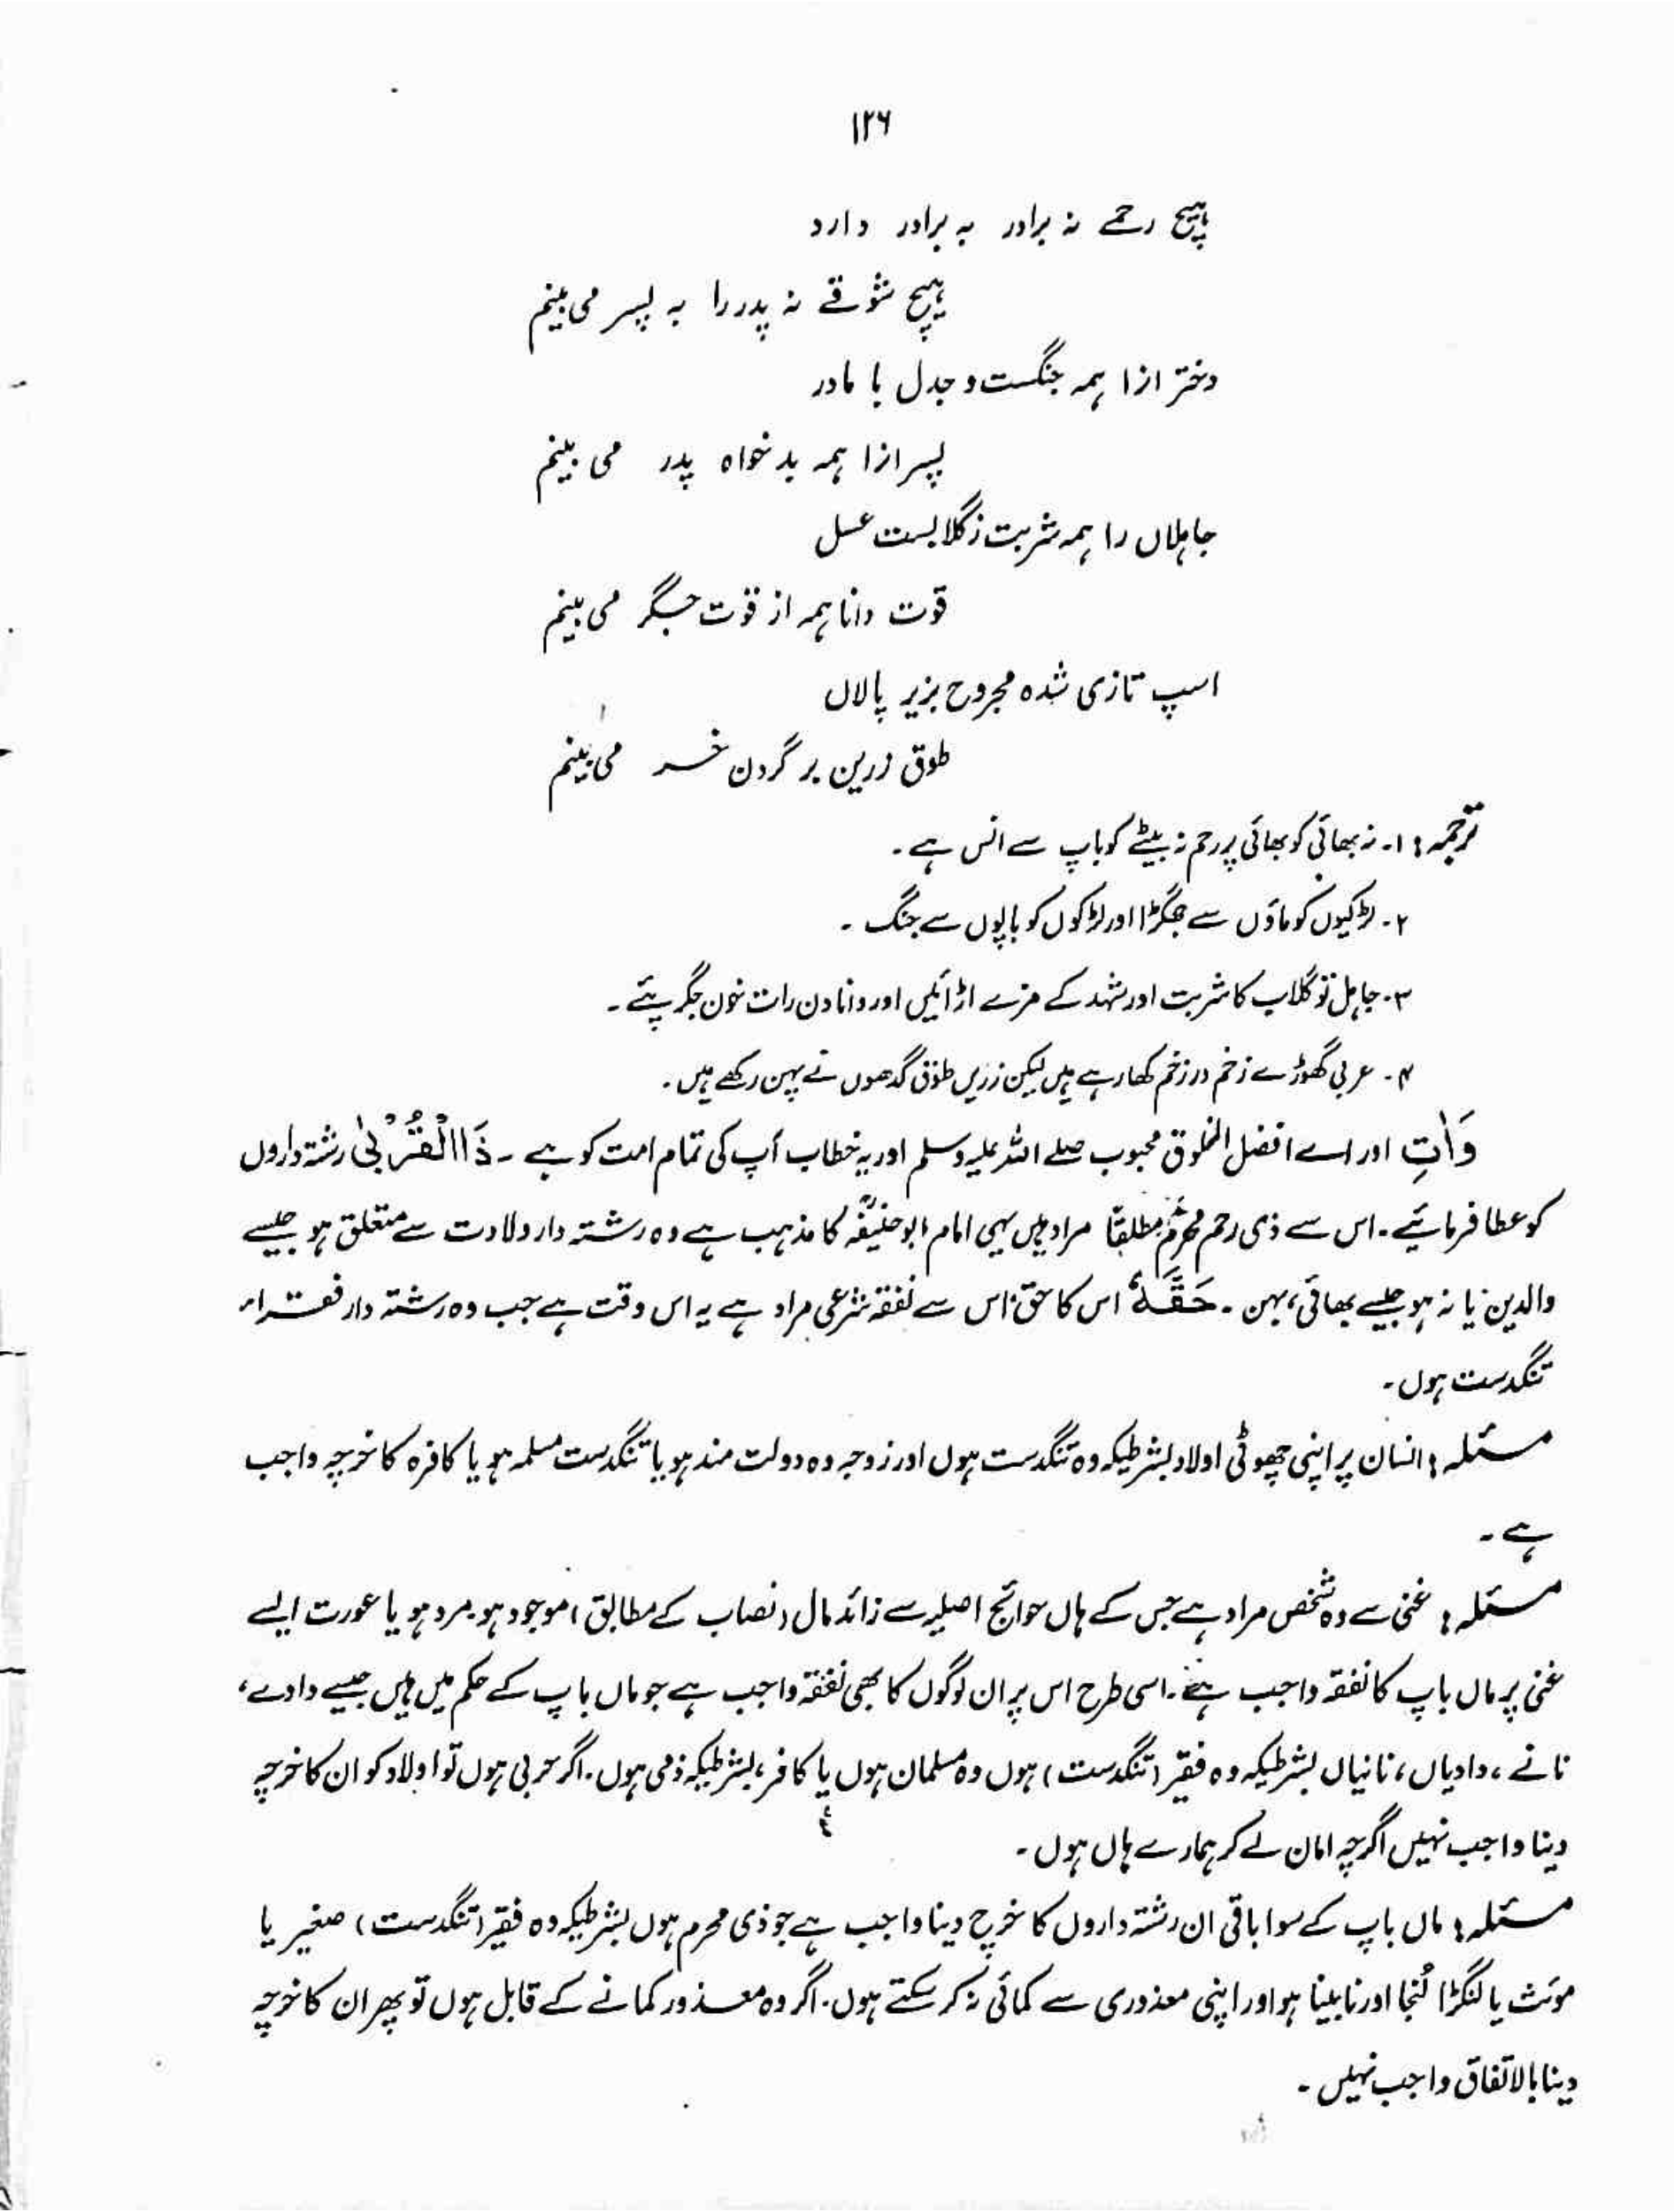 ۱۲۶
ہیچ رحمے نہ برادر بہ برادر دارد
ہیچ شوقے نہ پدر را بہ پسر می بینم
دختر ازا ہمہ جنگست و جدل با مادر
پسر ازا ہمہ بد خواہ پدر می بینم
جاہلاں را ہمہ شربت ز گلابست عسل
قوت دانا ہمہ از قوت جگر می بینم
اسپ تازی شدہ مجروح بزیر پالاں
طوق زرین بر گردن خر می بینم
ترجمہ: ۱۔ نہ بھائی کو بھائی پر رحم نہ بیٹے کو باپ سے انس ہے۔
۲۔ لڑکیوں کو ماؤں سے جھگڑا اور لڑکوں کو باپوں سے جنگ۔
۳۔ جاہل تو گلاب کا شربت اور شہد کے مزے اڑائیں اور دانا دن رات خون جگر پئے۔
۴۔ عربی گھوڑے زخم در زخم کھا رہے ہیں لیکن زریں طوق گدھوں نے پہن رکھے ہیں۔
وَاٰتِ اور اے افضل الخلوق محبوب صلے اللہ علیہ وسلم اور یہ خطاب آپ کی تمام امت کو ہے۔ ذَا الْقُرْبٰی رشتہ داروں
کو عطا فرمائیے۔ اس سے ذی رحم محرم مطلقًا مراد ہیں یہی امام ابو حنیفہؒ کا مذہب ہے وہ رشتہ دار ولادت سے متعلق ہو جیسے
والدین یا نہ ہو جیسے بھائی، بہن۔ حَقَّہٗ اس کا حق: اس سے نفقہ شرعی مراد ہے یہ اس وقت ہے جب وہ رشتہ دار فقراء
تنگدست ہوں۔
مسئلہ: انسان پر اپنی چھوٹی اولاد بشرطیکہ وہ تنگدست ہوں اور زوجہ وہ دولت مند ہو یا تنگدست مسلمہ ہو یا کافرہ کا خرچہ واجب
ہے۔
مسئلہ: غنی سے وہ شخص مراد ہے جس کے ہاں حوائج اصلیہ سے زائد مال (نصاب کے مطابق) موجود ہو۔ مرد ہو یا عورت ایسے
غنی پر ماں باپ کا نفقہ واجب ہے۔ اسی طرح اس پر ان لوگوں کا بھی نفقہ واجب ہے جو ماں باپ کے حکم میں ہیں جیسے دادے،
نانے، دادیاں، نانیاں بشرطیکہ وہ فقیر (تنگدست) ہوں وہ مسلمان ہوں یا کافر، بشرطیکہ ذمی ہوں۔ اگر حربی ہوں تو اولاد کو ان کا خرچہ
دینا واجب نہیں اگرچہ امان لے کر ہمارے ہاں ہوں۔
مسئلہ: ماں باپ کے سوا باقی ان رشتہ داروں کا خرچ دینا واجب ہے جو ذی محرم ہوں بشرطیکہ وہ فقیر (تنگدست) صغیر یا
مؤنث یا لنگڑا لُنجا اور نابینا ہو اور اپنی معذوری سے کمائی نہ کر سکتے ہوں۔ اگر وہ معذور کمانے کے قابل ہوں تو پھر ان کا خرچہ
دینا بالاتفاق واجب نہیں۔